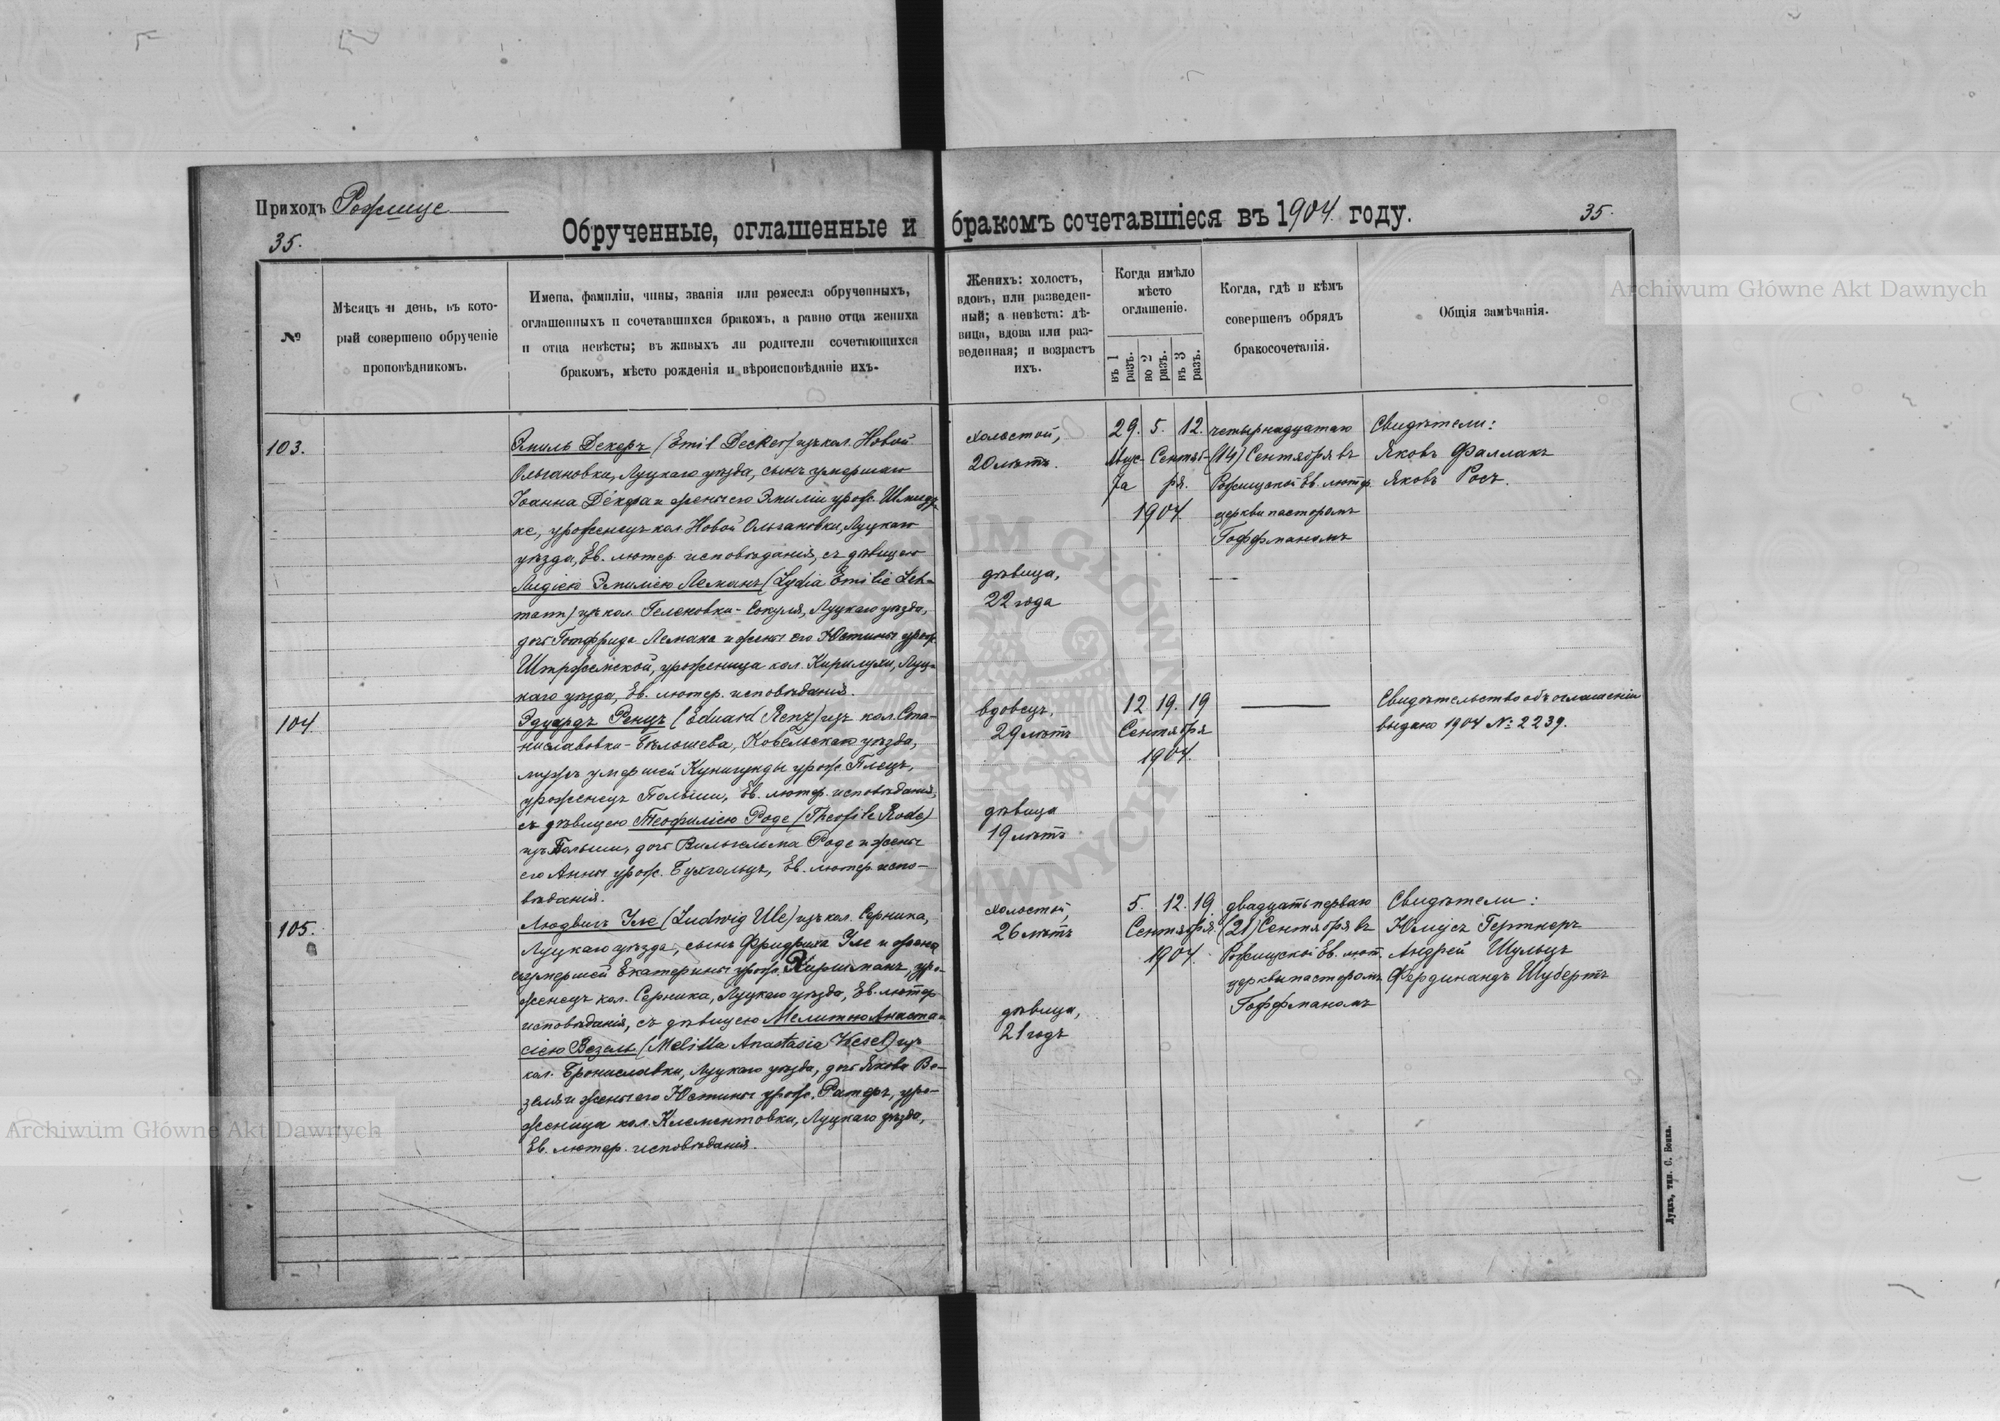 Приходъ Рожище
35.
Обрученные, оглашенные и бракомъ сочетавшіеся въ 1904. году.
35.
№
Мѣсяцъ и день, въ кото-
рый совершено обрученіе
проповѣдникомъ.
Имена, фамиліи, чины, званія или ремесла обрученныхъ,
оглашенныхъ и сочетавшихся бракомъ, а равно отца жениха
и отца невѣсты; въ живыхъ ли родители сочетающихся
бракомъ, мѣсто рожденія и вѣроисповѣданіе ихъ.
Женихъ: холостъ,
вдовъ, или разведен-
ный; а невѣста: дѣ-
вица, вдова или раз-
веденная; и возрастъ
ихъ.
Когда имѣло
мѣсто
оглашеніе.
въ 1 разъ.
во 2 разъ.
въ 3 разъ.
Когда, гдѣ и кѣмъ
совершенъ обрядъ
бракосочетанія.
Общія замѣчанія.
103.
Эмиль Декеръ (Emil Decker) изъ кол. Новой
Ольгановки, Луцкаго уѣзда, сынъ умершаго
Іоанна Декера и жены его Эмиліи урож. Шмидт-
ке, уроженецъ кол. Новой Ольгановки, Луцкаго
уѣзда, Ев. лютер. исповѣданія, съ дѣвицею
Лидіею Эмиліею Леманъ (Lydia Emilie Leh-
mann) изъ кол. Геленовки-Сокуля, Луцкаго уѣзда,
дочь Готфрида Лемана и жены его Юстины урож.
уроженица кол. Кирилухи, Луц-
каго уѣзда, Ев. лютер. исповѣданія.
холостой,
20 лѣтъ.
дѣвица,
22 года
29. 5. 12.
Авгус- Сентяб-
та ря.
1904.
четырнадцатаго
(14) Сентября въ
Рожищской Ев. лютер.
церкви пасторомъ
Гоффманомъ
Свидѣтели:
Яковъ Фаллакъ
Яковъ Росъ.
104.
Эдуардъ Ренцъ (Eduard Renz) изъ кол. Ста-
ниславовки-Бѣлашева, Ковельскаго уѣзда,
мужъ умершей Кунигунды урож. Плецъ,
уроженецъ Польши, Ев. лютер. исповѣданія,
съ дѣвицею Теофиліею Роде (Theofile Rode)
изъ Польши, дочь Вильгельма Роде и жены
его Анны урож. Бухгольцъ, Ев. лютер. испо-
вѣданія.
вдовецъ,
29 лѣтъ
дѣвица
19 лѣтъ
12. 19. 19
Сентября
1904.
Свидѣтельство объ оглашеніи
выдано 1904 № 2239.
105.
Людвигъ Уле (Ludwig Ule) изъ кол. Серника,
Луцкаго уѣзда, сынъ Фридриха Уле и жены
умершей Екатерины урож. Киршманъ, уро-
женецъ кол. Серника, Луцкаго уѣзда, Ев. лютер.
исповѣданія, съ дѣвицею Мелиттою Анаста-
сіею Везель (Melitta Anastasia Wesel) изъ
кол. Брониславки, Луцкаго уѣзда, дочь Якова Ве-
зеля и жены его Юстины урож. Ратеръ, уро-
женица кол. Клементовки, Луцкаго уѣзда,
Ев. лютер. исповѣданія.
холостой,
26 лѣтъ
дѣвица,
21 годъ
5. 12. 19
Сентября.
1904.
двадцать перваго
(21) Сентября въ
Рожищской Ев. лют.
церкви пасторомъ
Гоффманомъ
Свидѣтели:
Юліусъ Гертнеръ
Андрей Шульцъ
Фердинандъ Шубертъ
Луцкъ, тип. С. Бонка.
Archiwum Główne Akt Dawnych
Archiwum Główne Akt Dawnych